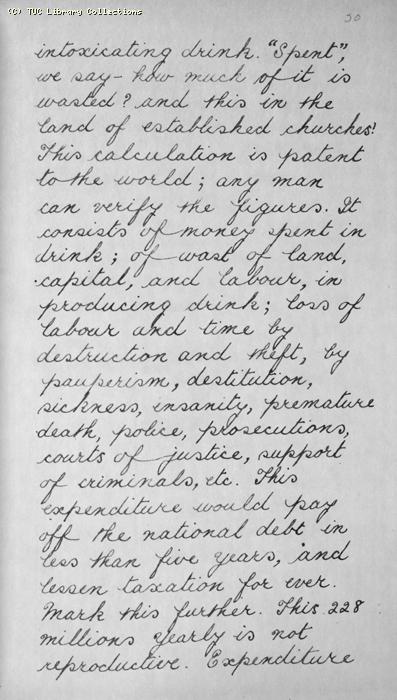 (C) TUC Library Collections
30
intoxicating drink. "Spent",
we say - how much of it is
wasted? and this in the
land of established churches!
This calculation is patent
to the world; any man
can verify the figures. It
consists of money spent in
drink; of wast of land,
capital, and labour, in
producing drink; loss of
labour and time by
destruction and theft, by
pauperism, destitution,
sickness, insanity, premature
death, police, prosecutions,
courts of justice, support
of criminals, etc. This
expenditure would pay
off the national debt in
less than five years, and
lessen taxation for ever.
Mark this further. This 228
millions yearly is not
reproductive. Expenditure